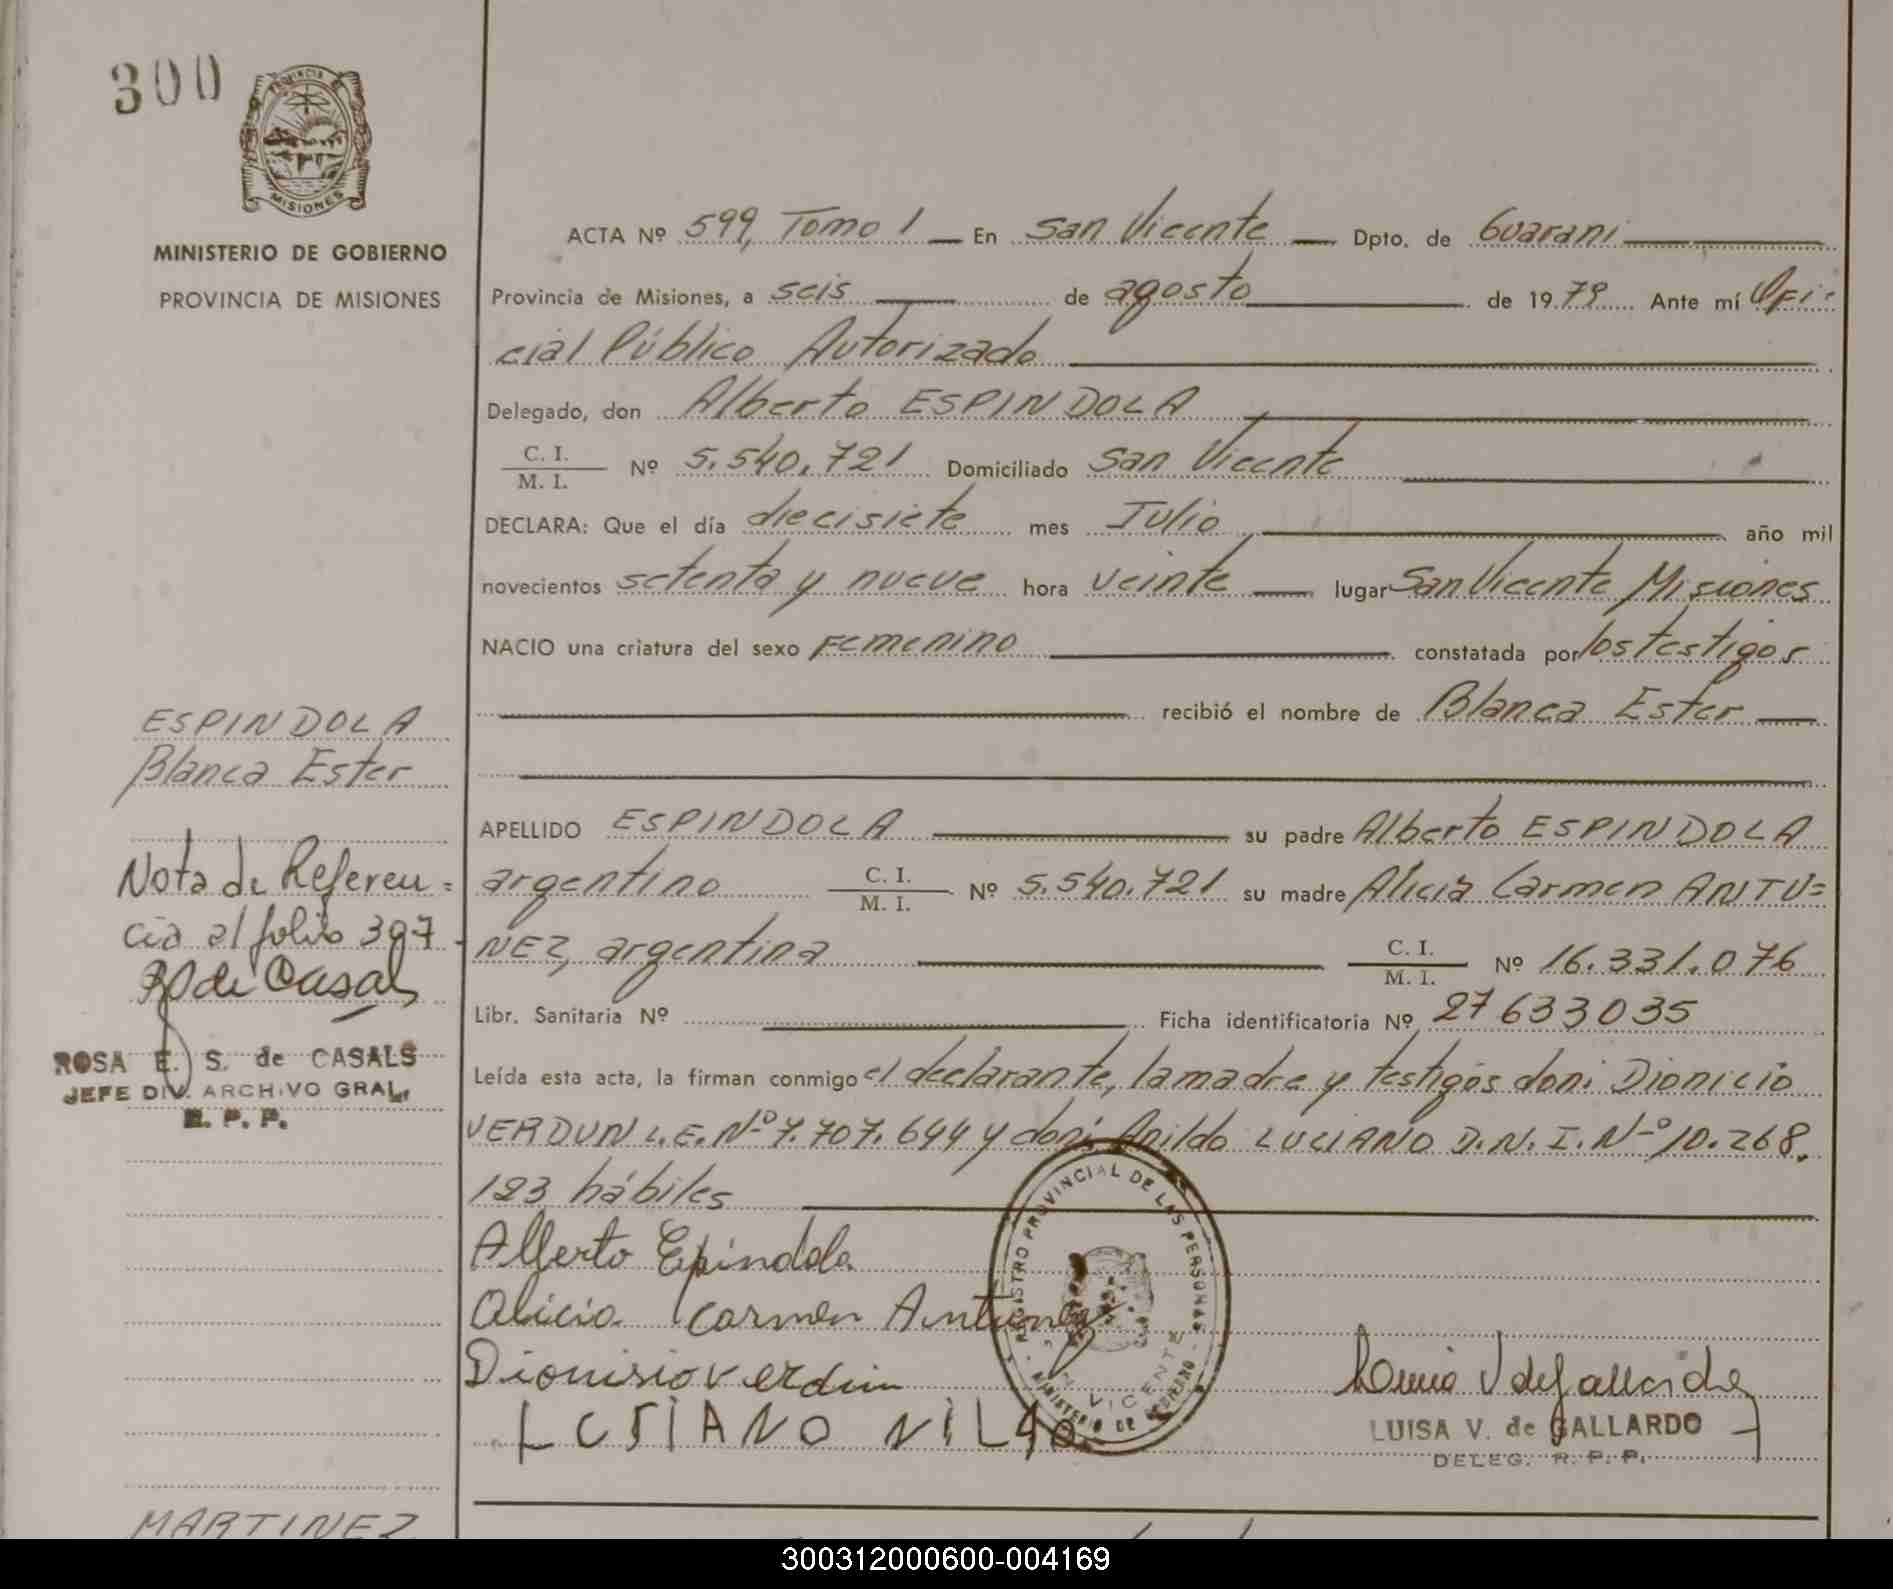 300
PROVINCIA DE
MISIONES
MINISTERIO DE GOBIERNO
PROVINCIA DE MISIONES
ACTA Nº 599, Tomo 1 En San Vicente Dpto. de Guarani
Provincia de Misiones, a seis de agosto de 1979 Ante mí Ofi=
cial Público Autorizado
Delegado, don Alberto ESPINDOLA
C. I.
M. I. Nº 5.540.721 Domiciliado San Vicente
DECLARA: Que el día diecisiete mes Julio año mil
novecientos setenta y nueve hora veinte lugar San Vicente Misiones
NACIO una criatura del sexo Femenino constatada por los testigos
recibió el nombre de Blanca Ester
ESPINDOLA
Blanca Ester
APELLIDO ESPINDOLA su padre Alberto ESPINDOLA
argentino C. I. M. I. Nº 5.540.721 su madre Alicia Carmen ANTU=
NEZ, argentina C. I. M. I. Nº 16.331.076
Libr. Sanitaria Nº Ficha identificatoria Nº 27633035
Leída esta acta, la firman conmigo el declarante, la madre y testigos don: Dionicio
VERDUN L.E. Nº 7.707.644 y don: Anildo LUCIANO D.N.I. Nº 10.268.
123 hábiles
Nota de Referen=
cia al folio 397
R de Casals
ROSA E. S. de CASALS
JEFE DIV. ARCHIVO GRAL.
R. P. P.
Alberto Epindola
Alicia Carmen Antunez
Dionisio Verdun
LUSIANO NILDO
REGISTRO PROVINCIAL DE LAS PERSONAS
MINISTERIO DE GOBIERNO
VICENTE
Luisa V de Gallardo
LUISA V. de GALLARDO
DELEG. R. P. P.
MARTINEZ
300312000600-004169